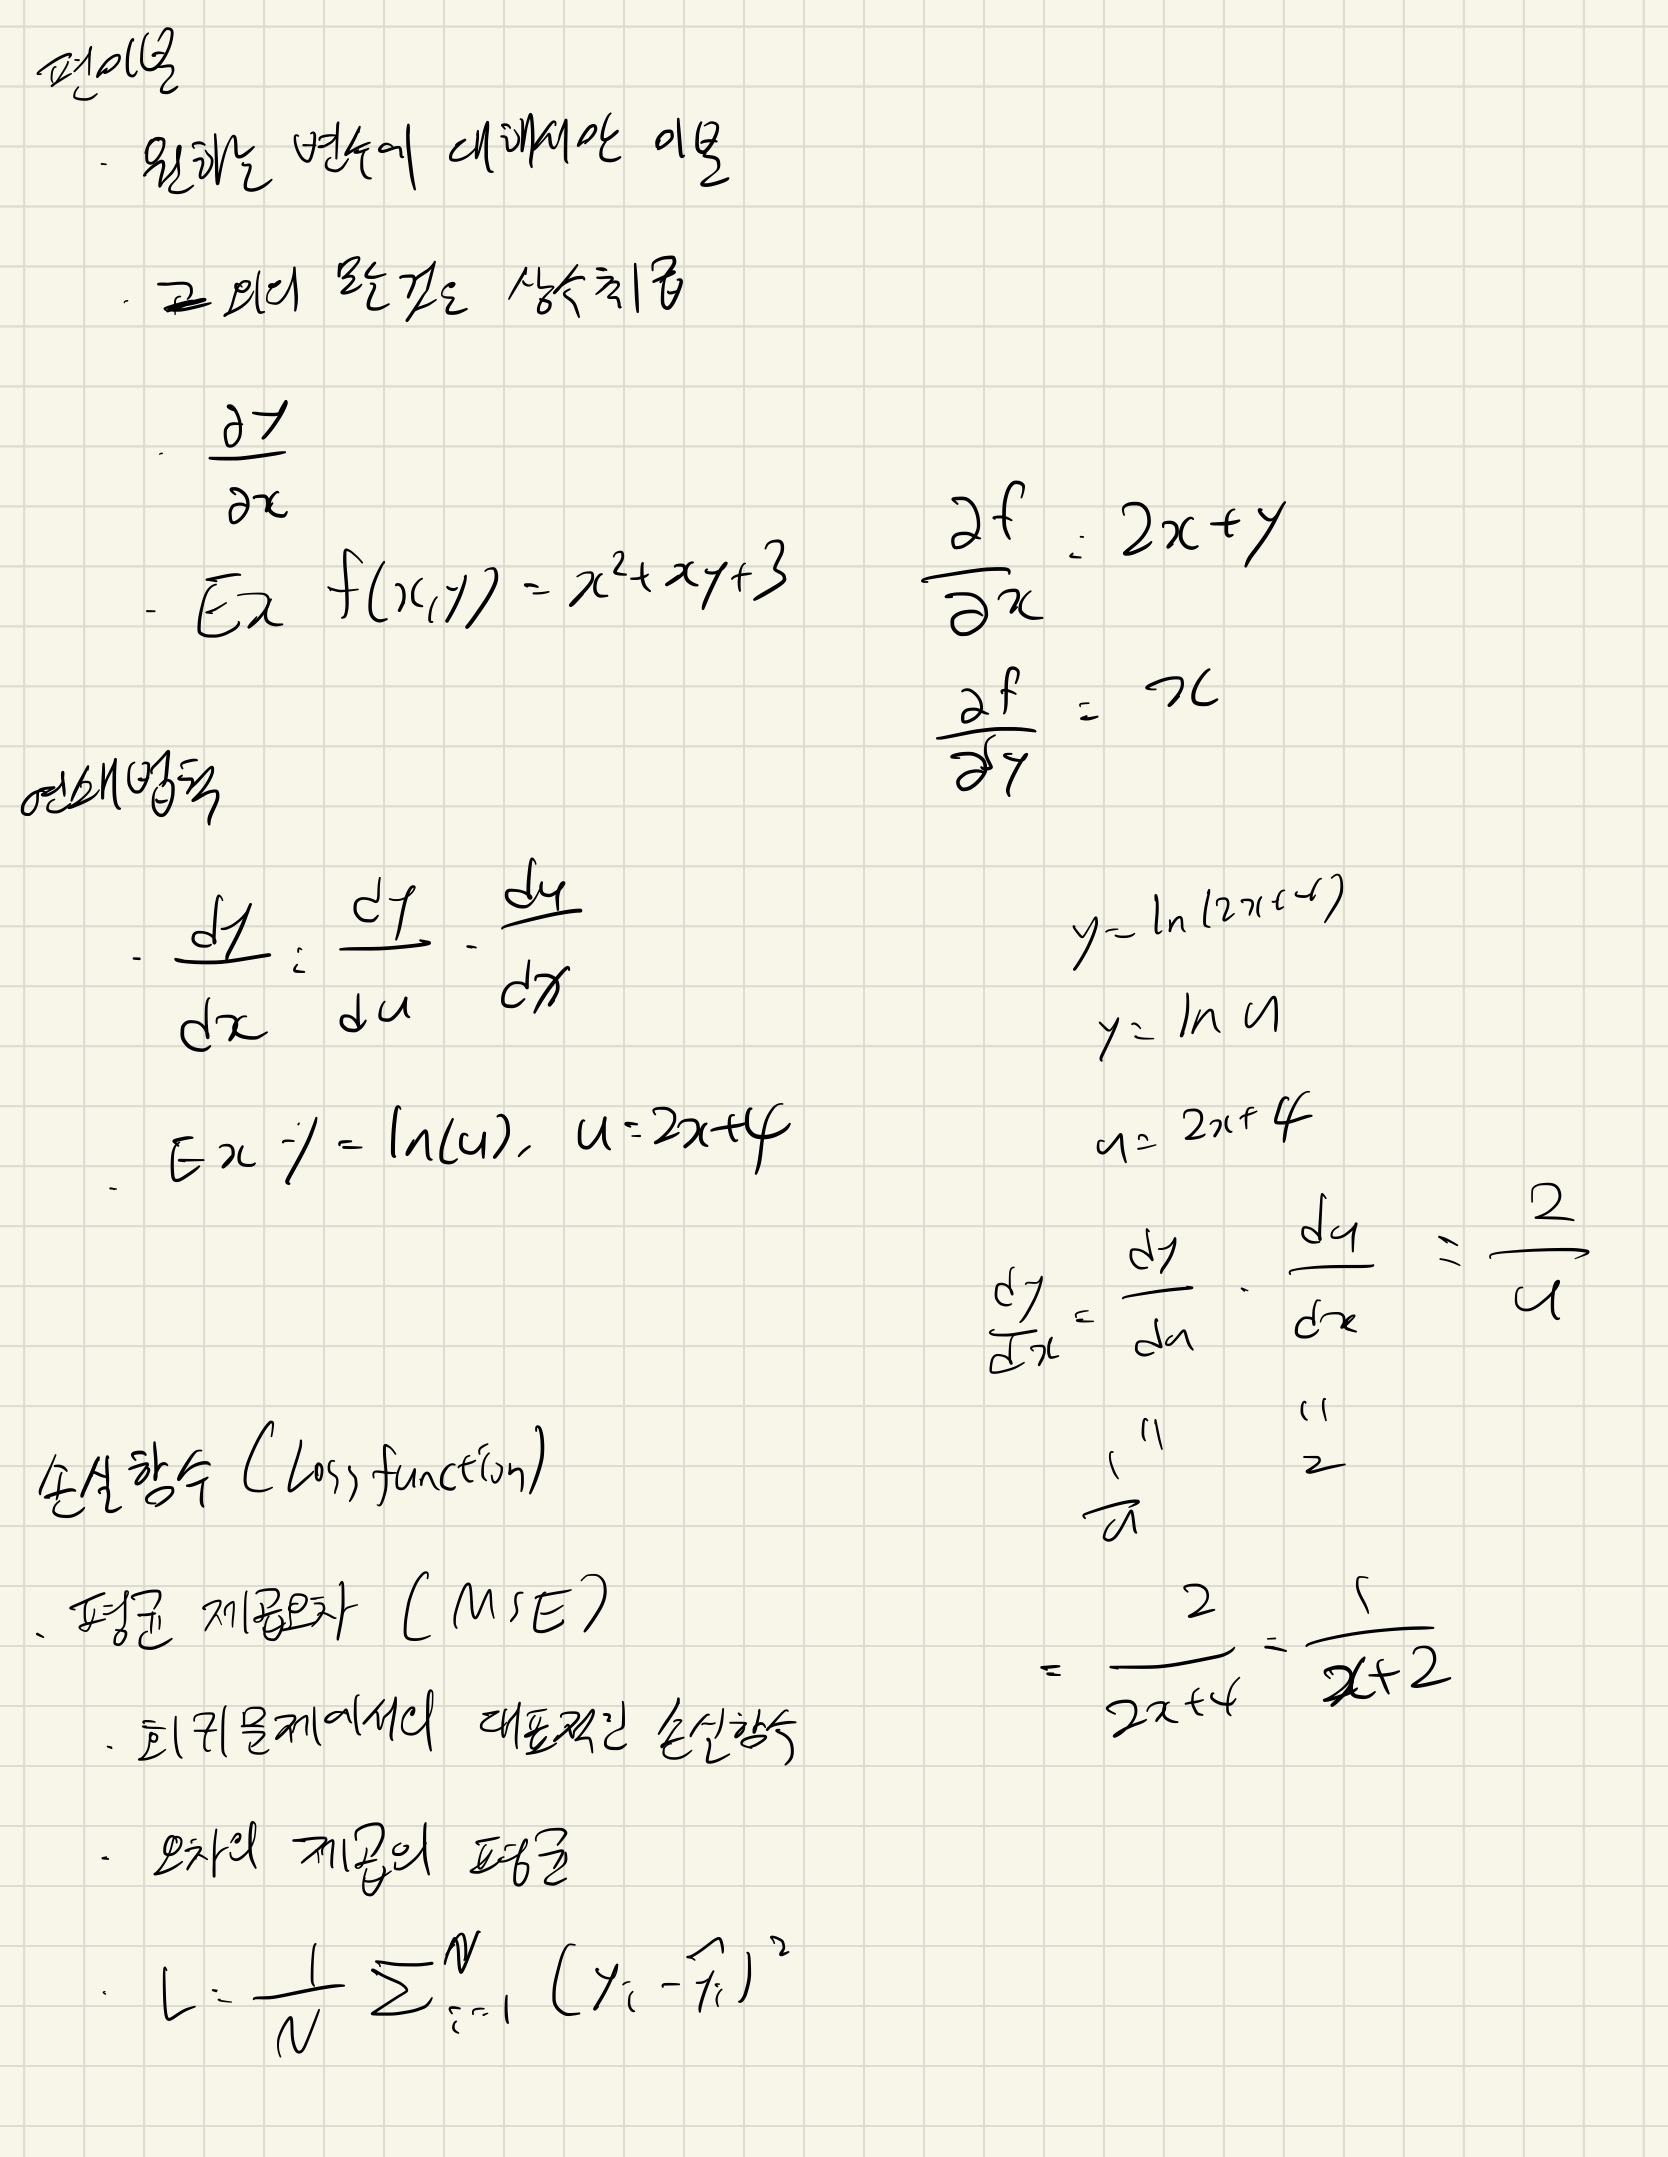 편미분
· 원하는 변수에 대해서만 미분
· 그 외의 모든것은 상수취급
· ∂y/∂x
- Ex f(x,y) = x²+xy+3
∂f/∂x = 2x+y
∂f/∂y = x
연쇄법칙
- dy/dx = dy/du · du/dx
- Ex y = ln(u), u=2x+4
y= ln(2x+4)
y= ln u
u= 2x+4
dy/dx = dy/du · du/dx = 2/u
" "
1/u 2
= 2/2x+4 = 1/x+2
손실함수 (Loss function)
· 평균 제곱오차 (MSE)
· 회귀문제에서의 대표적인 손실함수
· 오차의 제곱의 평균
· L = 1/N ∑ᵢ₌₁ᴺ (yᵢ - ŷᵢ)²